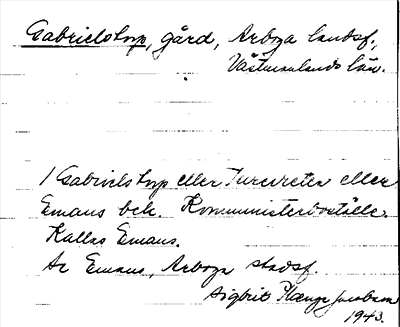 Gabrielstorp, gård, Arboga landsf.,
Västmanlands län.
1 Gabrielstorp eller eller
Emaus beh. Komministerboställe.
Kallas Emaus.
Se Emaus, Arboga stadsf.
Sigbrit Plænge Jacobson
1943.